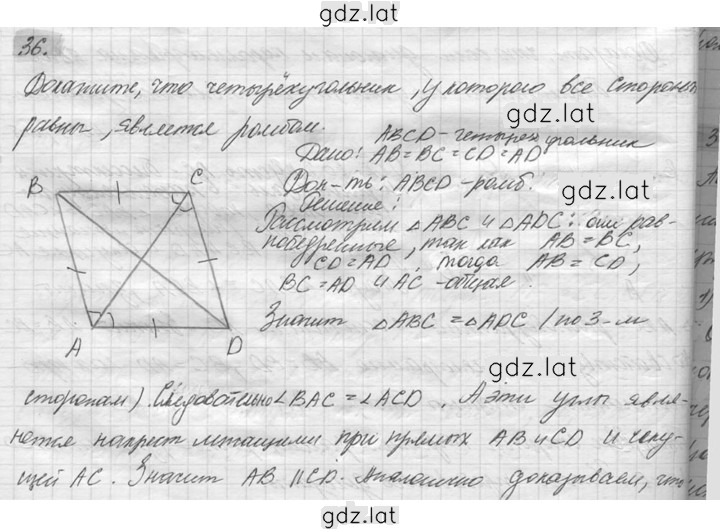 gdz.lat
36.
Докажите, что четырёхугольник, у которого все стороны
равны, является ромбом.
gdz.lat
ABCD - четырехугольник
Дано: AB = BC = CD = AD
Док-ть: ABCD - ромб.
Решение:
B
C
A
D
Рассмотрим △ABC и △ADC: они рав-
нобедренные, так как AB = BC,
CD = AD, тогда AB = CD,
BC = AD и AC - общая.
gdz.lat
Значит △ABC = △ADC (по 3-м
gdz.lat
сторонам). Следовательно ∠BAC = ∠ACD. А эти углы явля-
gdz.lat
ются накрест лежащими при прямых AB и CD и секу-
щей AC. Значит AB || CD. Аналогично доказываем, что
gdz.lat